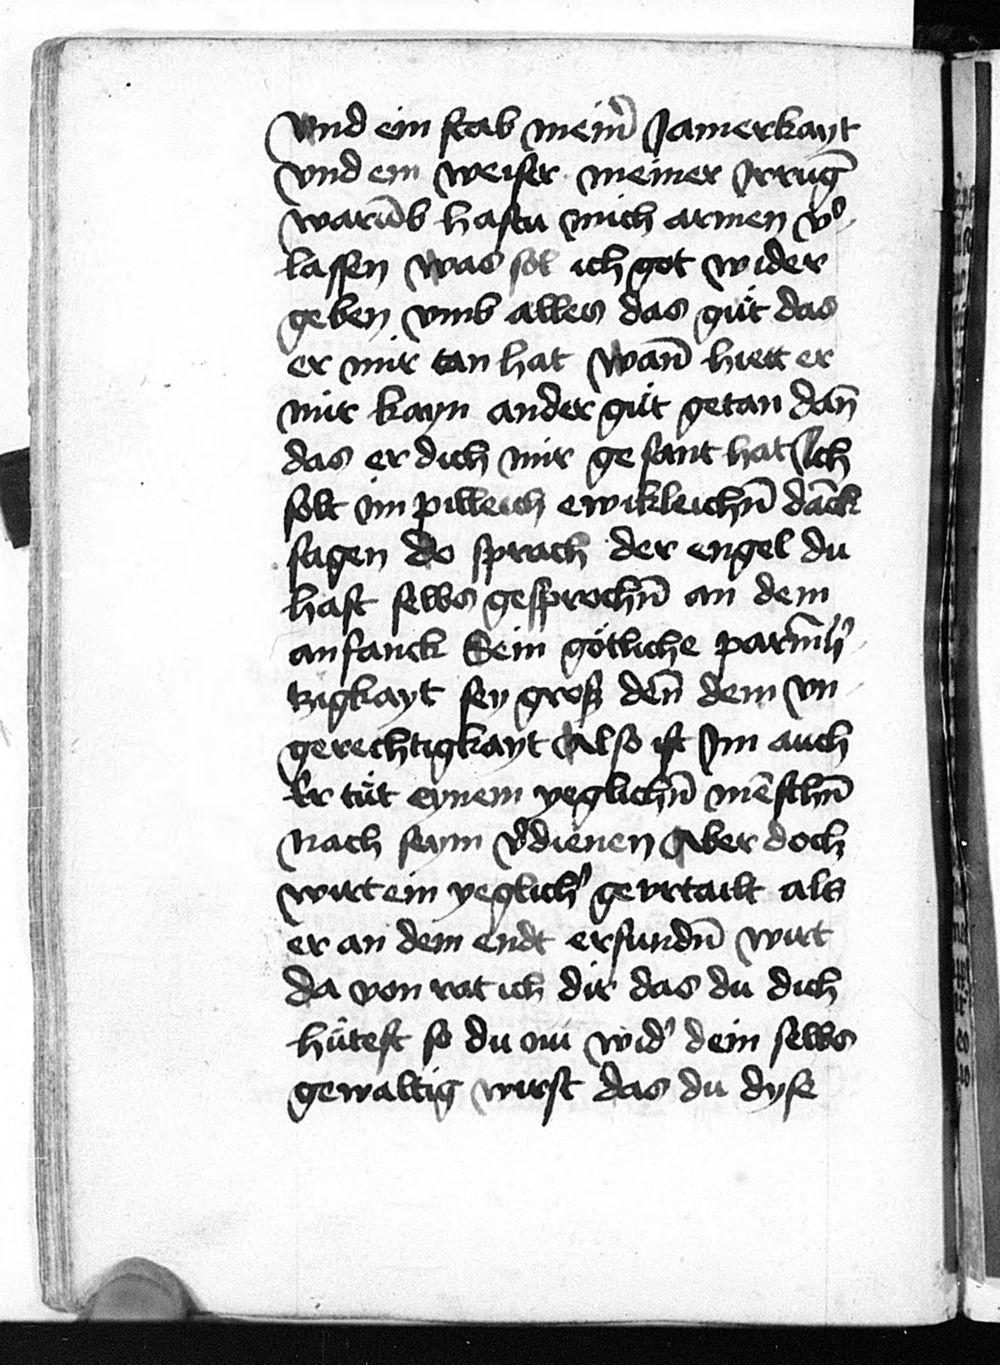 Vnd ein stab mein̄ Jamerkayt
vnd ein weiser meiner Jrrūg
warūb hastu mich armen v̓
lassen Was sol ich got wider
geben vmb alles das gůt das
er mir tan hat Wan̄ hiett er
mir kayn ander gůt getan dan̄
das er dich mir ge sant hat Ich
solt im pilleich ewikleichn̄ dāck
sagen do sprach der engel du
hast selbs gesprochn̄ an dem
anfanck Sein götliche parm̄h̓
tzigkayt sey groß den̄ dem vn
gerechtigkayt Also ist Jm auch
Er tůt eynem yeglichn̄ mēschn̄
nach seym v̓dienen Aber doch
wirt ein yeglich̓ gevrtailt als
er an dem endt erfundn̄ wirt
da von rat ich dir das du dich
hütest so du nu wid̓ dein selbs
gewaltig wirst das du dyse